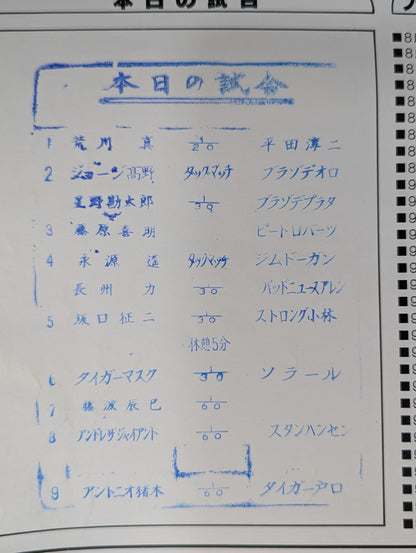 本日の試合
本日の試合
1 荒川 真 1/20 平田淳二
2 ジョージ高野 タッグマッチ ブラソデオロ
星野勘太郎 1/30 ブラソデプラタ
3 藤原喜明 ピートロバーツ
4 永源 遙 タッグマッチ ジムドーガン
長州 力 1/30 バッドニュースアレン
5 坂口征二 1/30 ストロング小林
休憩5分
6 タイガーマスク 1/30 ソラール
7 藤波辰巳 1/60
8 アンドレザジャイアント 1/60 スタンハンセン
9 アントニオ猪木 1/60 タイガー戸口